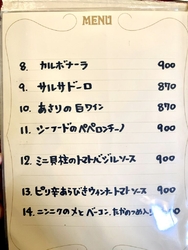 MENU
8. カルボナーラ 900
9. サルサドーロ 870
10. あさりの白ワイン 870
11. シーフードのペペロンチーノ 900
12. ミニ貝柱のトマトバジルソース 900
13. ピリ辛あらびきウィンナートマトソース 900
14. ニンニクのメとベーコン、たかのつめ入り